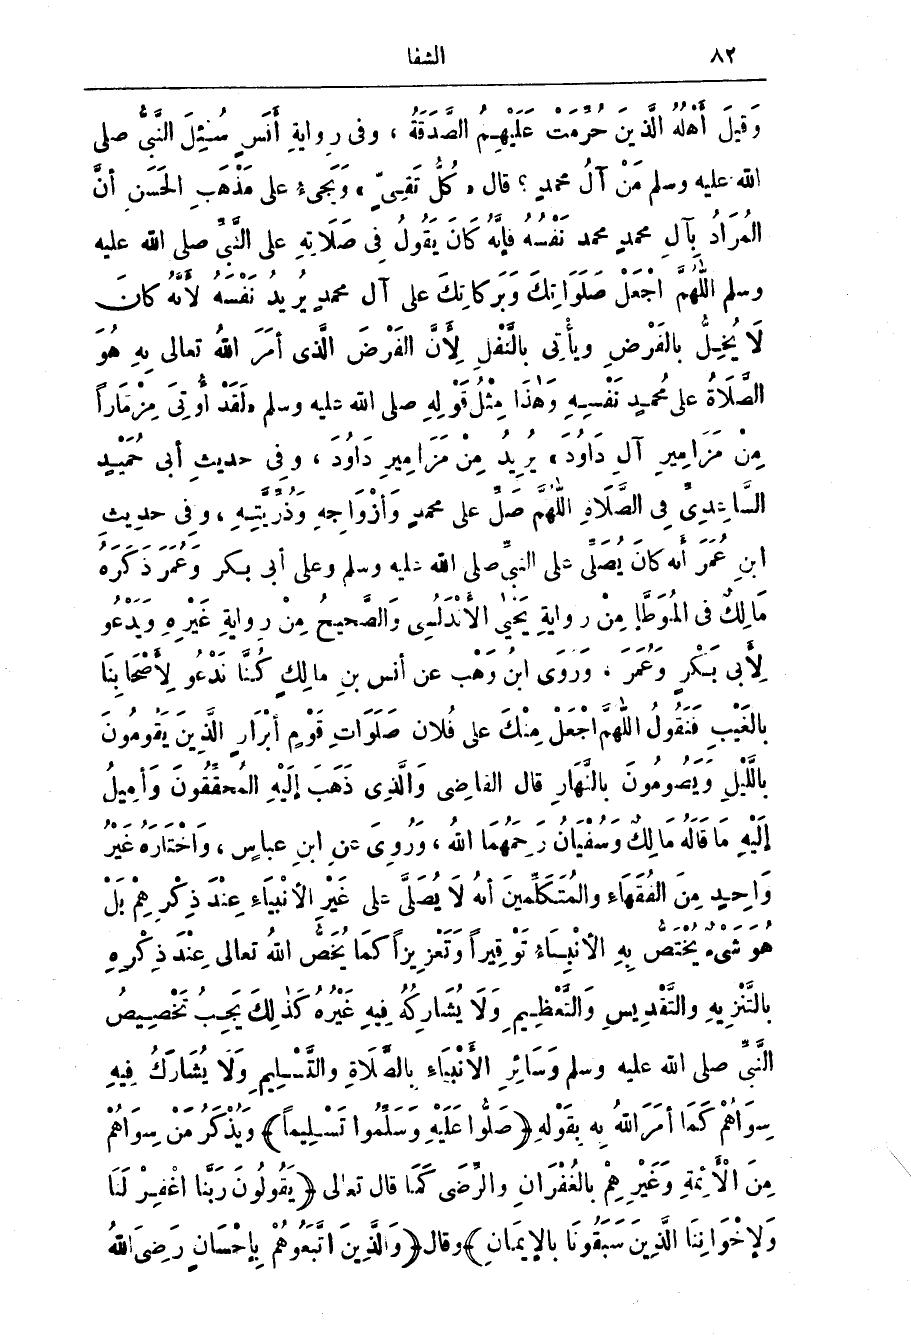 ٨٢ الشفا
وَقِيلَ أَهْلُهُ الَّذِينَ حُرِّمَتْ عَلَيْهِمُ الصَّدَقَةُ ، وفى رِوايةِ أَنَسٍ سُئِلَ النَّبِىُّ صلى
الله عليه وسلم مَنْ آلُ محمدٍ ؟ قال « كُلُّ تَقِىٍّ » وَيَجِىءُ على مَذْهَبِ الحَسَنِ أنَّ
المُرَادَ بِآلِ محمدٍ محمد نَفْسُهُ فإِنَّهُ كَانَ يَقُولُ فِى صَلَاتِهِ على النَّبِىِّ صلى الله عليه
وسلم اللّٰهُمَّ اجْعَلْ صَلَوَاتِكَ وَبَرَكاتِكَ على آل محمدٍ يُرِيدُ نَفْسَهُ لأَنَّهُ كانَ
لَا يُخِلُّ بالفَرْضِ ويأْتِى بالنَّفْلِ لِأَنَّ الفَرْضَ الَّذى أمَرَ اللهُ تعالى بِهِ هُوَ
الصَّلَاةُ على مُحَمدٍ نَفْسِهِ وَهٰذَا مِثْلُ قَوْلِهِ صلى الله عليه وسلم «لَقَدْ أُوتِىَ مِزْمَاراً
مِنْ مَزَامِيرِ آلِ دَاوُدَ» يُرِيدُ مِنْ مَزَامِيرِ دَاوُدَ ، وفى حديثِ أبى حُمَيْدٍ
السَّاعِدِىِّ فِى الصَّلَاةِ اللّٰهُمَّ صَلِّ على محمدٍ وَأَزْوَاجِهِ وَذُرِّيَّتِهِ ، وفى حديثِ
ابنِ عُمَرَ أنه كانَ يُصَلِّى على النبىِّ صلى الله عليه وسلم وعلى أبى بكر وَعُمَرَ ذَكَرَهُ
مَالِكٌ فى المُوَطَّإِ مِنْ رِوايةِ يَحْيٰى الأَنْدَلُسِى وَالصَّحِيحُ مِنْ رِوايةِ غَيْرِهِ وَيَدْعُو
لِأَبى بَكْرٍ وَعُمَرَ ، وَرَوَى ابنُ وَهْب عن أنس بنِ مالِكٍ كُنَّا نَدْعُو لِأَصْحَابِنَا
بالغَيْبِ فَنَقُولُ اللّٰهُمَّ اجْعَلْ مِنْكَ على فُلَان صَلَوَاتِ قَوْمٍ أَبْرَارٍ الَّذِينَ يَقُومُونَ
باللَّيْلِ وَيَصُومُونَ بالنَّهَارِ قال القاضِى وَالَّذِى ذَهَبَ إلَيْهِ المُحقِّقُونَ وَأَمِيلُ
إلَيْهِ مَا قَالَهُ مَالِكٌ وَسُفْيَانُ رَحِمَهُمَا اللهُ ، وَرُوِىَ عَنِ ابنِ عباسٍ ، وَاخْتَارَهُ غَيْرُ
وَاحِدٍ مِنَ الفُقَهَاءِ والمُتَكَلِّمِينَ أنهُ لَا يُصَلَّى على غَيْرِ الأنْبِيَاءِ عِنْدَ ذِكْرِهِمْ بَلْ
هُوَ شَىْءٌ يُخْتَصُّ بِهِ الأَنْبِيَاءُ تَوْقِيراً وَتَعْزِيزاً كَمَا يُخَصُّ اللهُ تعالى عِنْدَ ذِكْرِهِ
بالتَّنْزِيهِ والتَّقْدِيسِ وَالتَّعْظِيمِ وَلَا يُشَارِكُهُ فِيهِ غَيْرُهُ كَذٰلِكَ يَجِبُ تَخْصِيصُ
النَّبِىِّ صلى الله عليه وسلم وَسَائِرِ الأَنْبِيَاءِ بالصَّلَاةِ والتَّسْلِيمِ وَلَا يُشَارَكُ فِيهِ
سِوَاهُمْ كَمَا أَمَرَ اللهُ بِهِ بِقَوْلِهِ ﴿صَلُّوا عَلَيْهِ وَسَلِّمُوا تَسْلِيماً﴾ وَيُذْكَرُ مَنْ سِوَاهُمْ
مِنَ الْأَئِمَّةِ وَغَيْرِهِمْ بالغُفْرَانِ والرِّضَى كَمَا قال تعالى ﴿يَقُولُونَ رَبَّنَا اغْفِرْ لَنَا
وَلِإِخْوَانِنَا الَّذِينَ سَبَقُونَا بالإِيمَانِ﴾ وقال ﴿وَالَّذِينَ اتَّبَعُوهُمْ بِإِحْسَانٍ رَضِىَ اللهُ